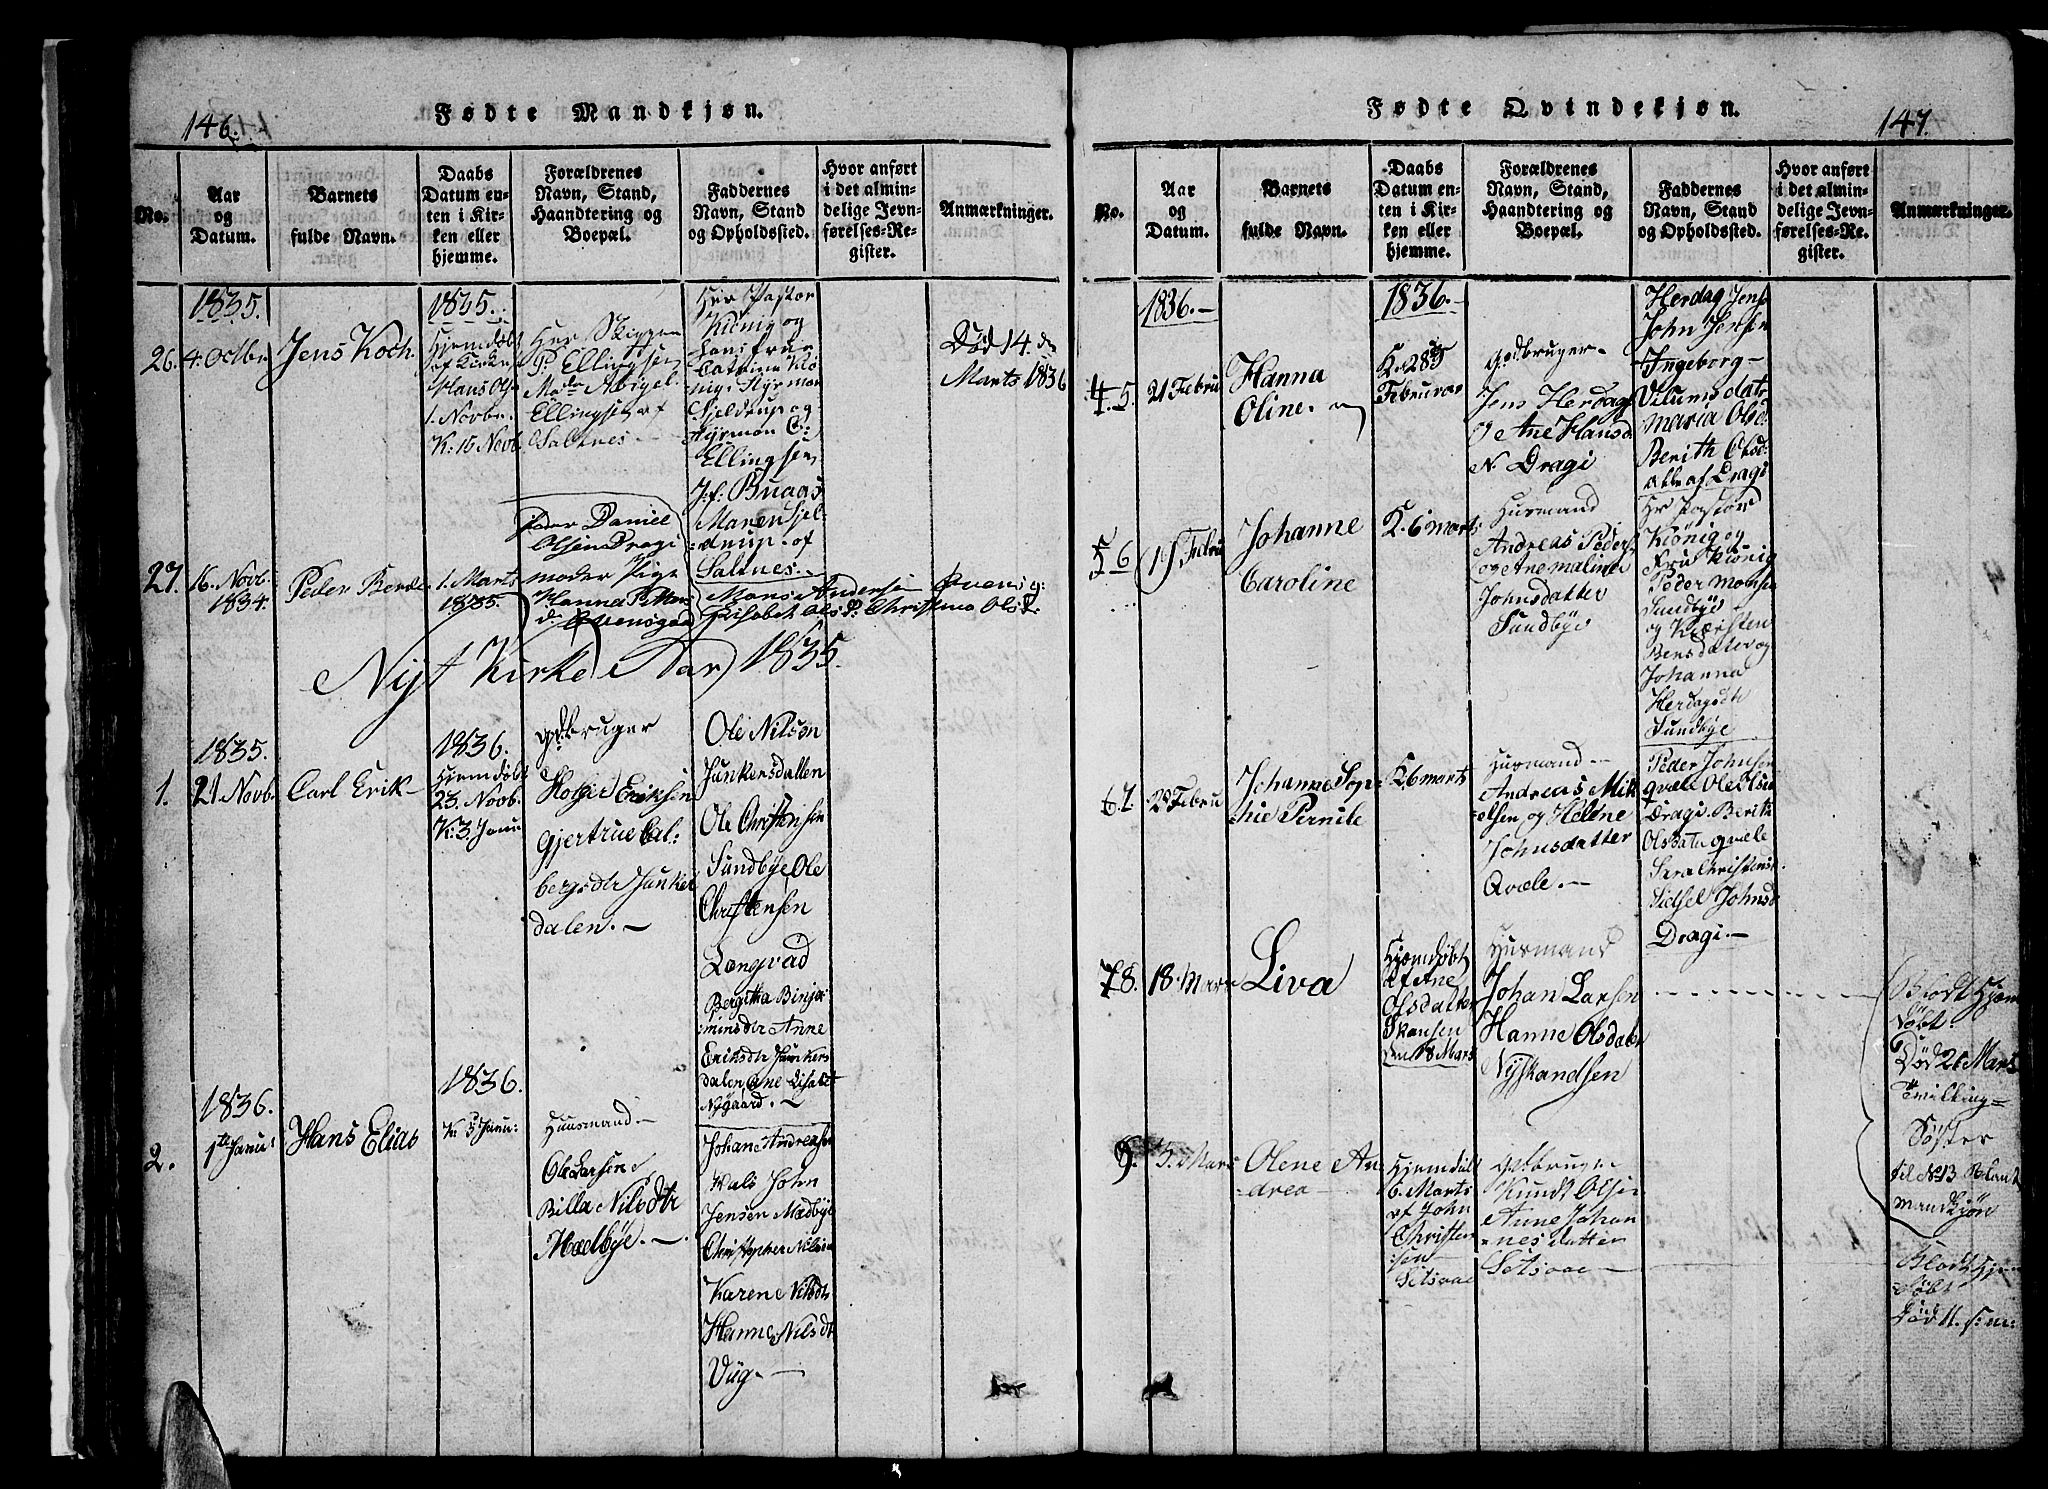 146.
Fødte Mandkjøn.
No.
Aar
og
Datum.
Barnets
fulde Navn.
Daabs
Datum en-
ten i Kir-
ken eller
hjemme.
Forældrenes
Navn, Stand,
Haandtering og
Boepæl.
Faddernes
Navn, Stand
og Opholdssted.
Hvor anført
i det almin-
delige Jevn-
førelses-Re-
gister.
Anmærkninger.
1835.
26. 4. Octbr
Jens Koch.
1835.
Hjemdøbt
af Kirkes.
Hans Ols
1. Novbr.
K: 15 Novb.
Herr Skipper
P. Ellingsen
Mdm Abigel
Ellingsen af
Saltnes
Herr Pastor
Kiønig og
Hans frue
Catrina Kiø
nig. Styrman
Gjeldrup og
Styrman C:
Ellingsen
J.f: Buaas
Maren Gjel-
drup. af
Saltnes.
Død 14. de
Marts 1836
27. 16. Novb.
1834.
Peder Berde
1. Marts
1835.
Fader Daniel
Olsen Dragi
moder Pige
Hanna P. Mars
d. Evensgaa
Mons Andersen Evensg:
Elisabet Ols D. Christina Olsd.
Nyt Kirke Aar 1835.
1835.
1. 21 Novb.
Carl Erik
1836.
Hjemdøbt
23. Novb.
K: 3. Janu
Gdbruger
Holger Eriksen
Gjertrue Cal-
bergsdtr Junker
dalen.
Ole Nilson
Junkersdallen
Ole Christensen
Sundbye Ole
Christensen
Længvad
Bergitha Binja-
minsdtr Anne
Eriksdtr Junkers
dalen Ane Lisabt
Nygaard.
1836.
2. 1te Janu:
Hans Elias
1836.
K: 3 Janu:
Huusmand
Ole Larsen
Billa Nilsdtr
Mædbye.
Johan Andreasen
Vals John
Jensen Mædbye
Christopher Nilsen
Karen Nilsdt
Hanne Nilsdt
Vug.
147.
Fødte Qvindekjøn.
No.
Aar
og
Datum.
Barnets
fulde Navn.
Daabs
Datum en-
ten i Kir-
ken eller
hjemme.
Forældrenes
Navn, Stand,
Haandtering og
Boepæl.
Faddernes
Navn, Stand
og Opholdssted.
Hvor anført
i det almin-
delige Jevn-
førelses-Re-
gister.
Anmærkninger.
1836.
4. 5. 21 Febru
Hanna
Oline.
1836.
K. 28de
Februar
Gdbruger
Jens Herdags
O Ane Hansd.
N. Dragi
Herdag Jens
John Jensen
Ingeborg
Vilumsdat
Maria Olsd
Berith Olsd:
alle af Dragi
5 6 19 Febru
Johanne
Caroline
K. 6 marts
Husmand
Andreas Peders
og Ane malina
Johnsdatter
Sundbye
Hr Pastor
Kiönig og
Fru Kiönig
Peder Monsen
Sundbye
og Kiersten
Bensdater og
Johanna
Herdagsdt
Sundbye
6 7. 20 Febru
Johanne Sop-
hie Pernile
K. 6 marts
Husmand
Andreas Mik
elsen og Helene
Johnsdatter
Qvæle.
Peder Johnsen
Qvæle Ole Olsen
Dragi Berit
Olsdater Qvæle
Sara Christensd.
Sietsel Johnsd
Dragi.
7 8. 18. Mars
Liva
Hjemdøbt
af Ane
Olsdatter
Skansen
den 18 Mars
Husmand
Johan Larsen
Hanne Olsdater
Nyskandsen
Blodt Hjem
døbt.
Død 21 Mars
Twilling-
Søster
til No 13 Blant
mandkjøn
9. 5. Mars
Olene An
drea
Hjemdøbt
6. Marts
af John
Christen
sen
Setsaae
Gdbruger
Knudt Olsen
Anne Johan
nesdatter
Setsaae
Blodt Hjem
døbt
Død 11. s: m: